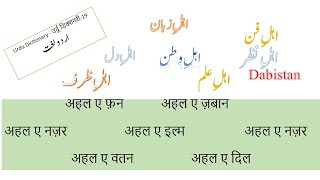 Urdu Dictionary - उर्दू डिक्शनरी-19
اردو لغت
اہلِ زبان
اہلِ فن
اہلِ دل
اہلِ وطن
اہلِ نظر
اہلِ ظرف
اہلِ علم
Dabistan
अहल ए फ़न अहल ए ज़बान
अहल ए नज़र अहल ए इल्म अहल ए नज़र
अहल ए वतन अहल ए दिल